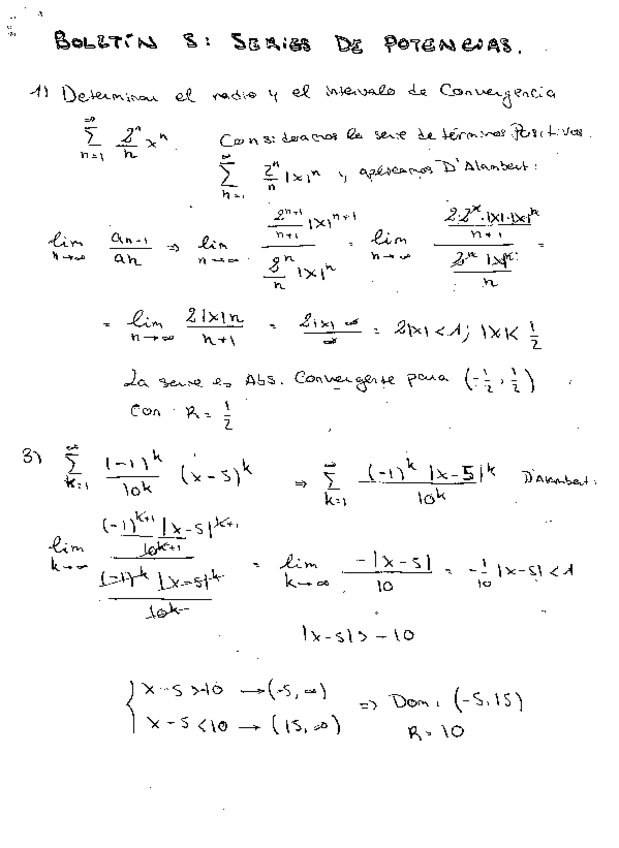 BOLETÍN 8: SERIES DE POTENCIAS.
1) Determinar el radio y el intervalo de Convergencia
∞ Σ n=1 2^n/n x^n. Consideramos la serie de términos Positivos.
∞ Σ n=1 2^n/n |x|^n y aplicamos D'Alambert:
lim n→∞ a_{n-1}/a_n ⇒ lim n→∞ (2^{n+1}/(n+1) |x|^{n+1})/(2^n/n |x|^n) = lim n→∞ (2·2^n·|x|·|x|^n/(n+1))/(2^n |x|^n/n) =
= lim n→∞ 2|x|n/(n+1) = 2|x|∞/∞ = 2|x| < 1; |x| < 1/2
La serie es Abs. Convergente para (-1/2, 1/2)
Con R = 1/2
3) ∞ Σ k=1 (-1)^k/10^k (x-5)^k ⇒ ∞ Σ k=1 (-1)^k |x-5|^k/10^k D'Alambert:
lim k→∞ ((-1)^{k+1} |x-5|^{k+1}/10^{k+1})/((-1)^k |x-5|^k/10^k) = lim k→∞ -|x-5|/10 = -1/10 |x-5| < 1
|x-5| > -10
{ x-5 > -10 → (-5, ∞)
x-5 < 10 → (15, ∞) ⇒ Dom: (-5, 15)
R = 10